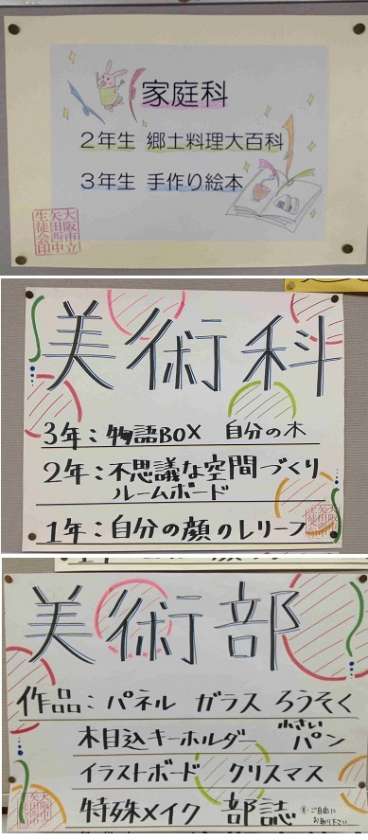 家庭科
2年生 郷土料理大百科
3年生 手作り絵本
大阪市立
矢田西中
生徒会印
美術科
3年：物語BOX 自分の木
2年：不思議な空間づくり
ルームボード
1年：自分の顔のレリーフ
美術部
作品：パネル ガラス ろうそく
木目込キーホルダー 小さいパン
イラストボード クリスマス
特殊メイク 部誌
ご自由に
お取り下さい